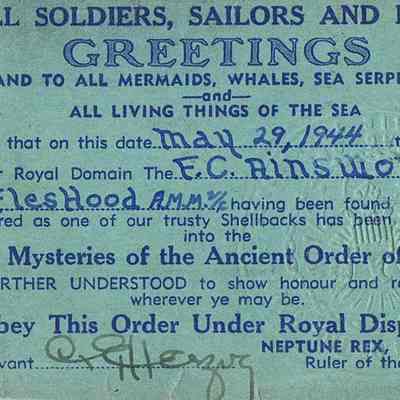 LL SOLDIERS, SAILORS AND
GREETINGS
AND TO ALL MERMAIDS, WHALES, SEA SERPE
—and—
ALL LIVING THINGS OF THE SEA
that on this date May 29, 1944
Royal Domain The F.C. Ainswo
Fleshood A.M.M. 2/c having been found
ered as one of our trusty Shellbacks has been
into the
Mysteries of the Ancient Order of
RTHER UNDERSTOOD to show honour and re
wherever ye may be.
bey This Order Under Royal Disp
NEPTUNE REX,
vant Ruler of the